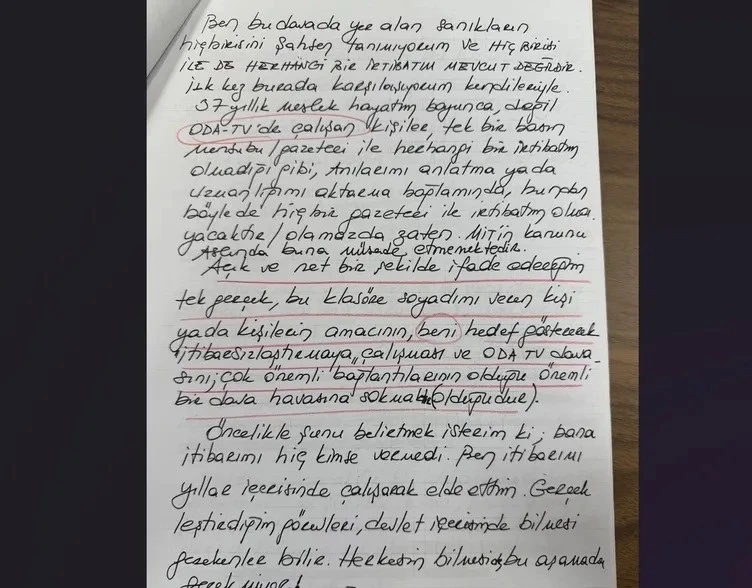 Ben bu davada yer alan sanıkların
hiçbirisini şahsen tanımıyorum ve HİÇ BİRİSİ
İLE DE HERHANGİ BİR İRTİBATIM MEVCUT DEĞİLDİR.
İlk kez burada karşılaşıyorum kendileriyle.
37 yıllık meslek hayatım boyunca, değil
ODA-TV'de çalışan kişiler, tek bir basın
mensubu/gazeteci ile herhangi bir irtibatım
olmadığı gibi, Anılarımı anlatma yada
uzmanlığımı aktarma bağlamında, bundan
böylede hiç bir gazeteci ile irtibatım olma.
yacaktır/olamazda zaten. MİT'in kanunu
Aslında buna müsade etmemektedir.
Açık ve net bir şekilde ifade edeceğim
tek gerçek, bu klasöre soyadımı veren kişi
yada kişilerin amacının, beni hedef göstererek
itibarsızlaştırmaya, çalışması ve ODA TV dava-
sını; çok önemli bağlantılarının olduğu önemli
bir dava havasına sokmak (olduğudur).
Öncelikle şunu belirtmek isterim ki; bana
itibarımı hiç kimse vermedi. Ben itibarımı
yıllar içerisinde çalışarak elde ettim. Gerçek
leştirdiğim görevleri, devlet içerisinde bilmesi
gerekenler bilir. Herkesin bilmeside bu aşamada
gerekmiyor!